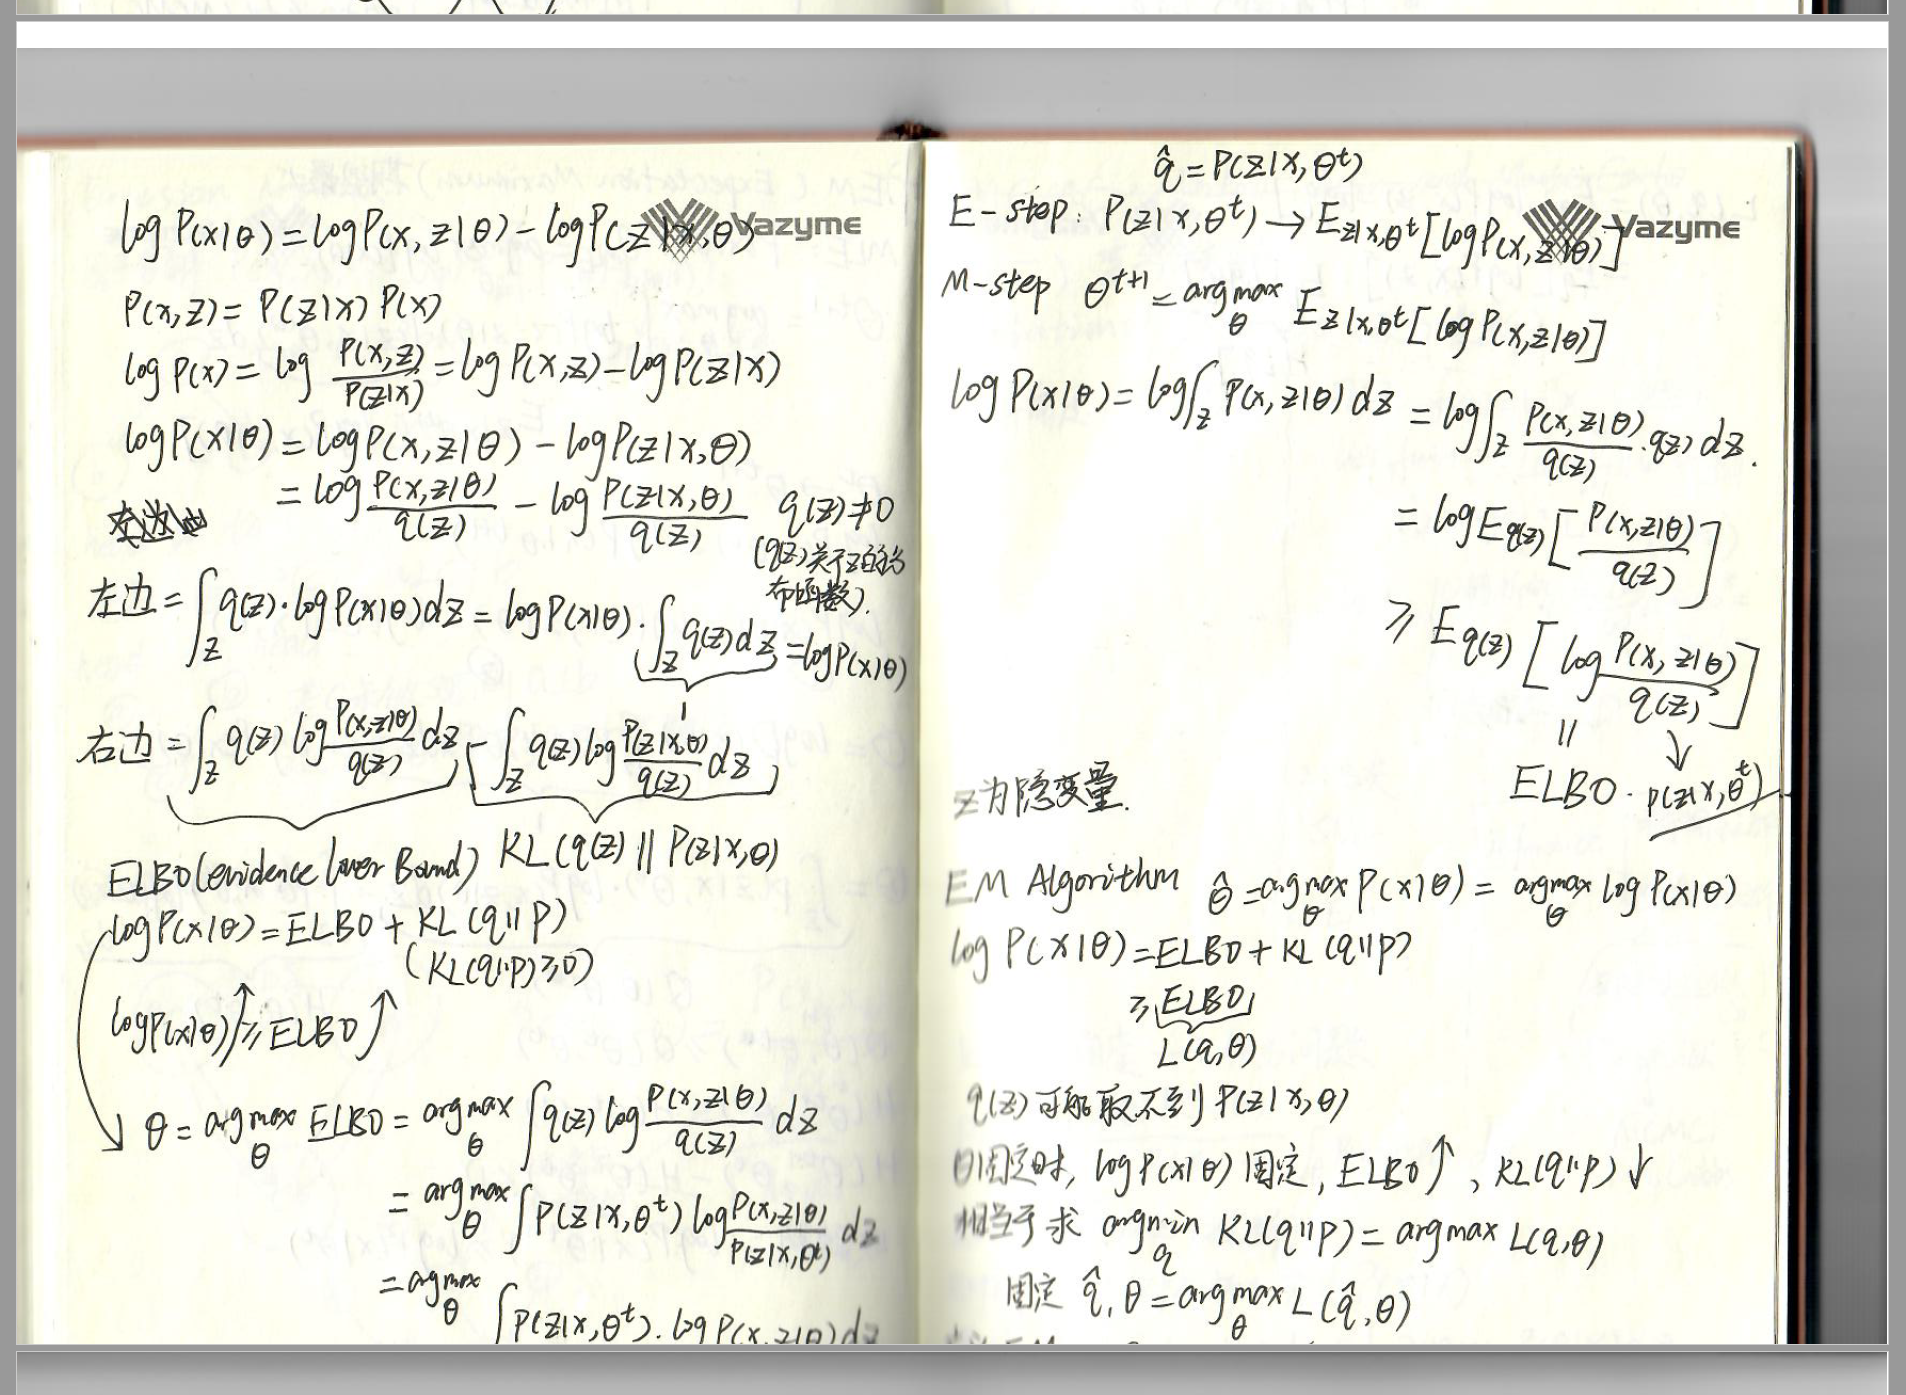 log P(x|θ) = log P(x, z|θ) - log P(z|x, θ)
Vazyme
P(x,z) = P(z|x) P(x)
log P(x) = log P(x,z)/P(z|x) = log P(x,z) - log P(z|x)
log P(x|θ) = log P(x, z|θ) - log P(z|x, θ)
= log P(x,z|θ)/q(z) - log P(z|x,θ)/q(z) q(z) ≠ 0
(q(z)关于z的分布函数).
左边 = ∫_z q(z)·log P(x|θ) dz = log P(x|θ) · ∫_z q(z) dz = log P(x|θ)
1
右边 = ∫_z q(z) log P(x,z|θ)/q(z) dz - ∫_z q(z) log P(z|x,θ)/q(z) dz
ELBO (evidence lower Bound) KL(q(z) || P(z|x,θ)
log P(x|θ) = ELBO + KL(q||p)
(KL(q||p) ≥ 0)
log P(x|θ)↑ ≥ ELBO↑
θ = argmax_θ ELBO = argmax_θ ∫ q(z) log P(x,z|θ)/q(z) dz
= argmax_θ ∫ P(z|x,θ^t) log P(x,z|θ)/P(z|x,θ^t) dz
= argmax_θ ∫ P(z|x,θ^t). log P(x,z|θ) dz
q̂ = P(z|x,θ^t)
E-step: P(z|x,θ^t) → E_z|x,θ^t [log P(x,z|θ)]
Vazyme
M-step θ^t+1 = argmax_θ E_z|x,θ^t [log P(x,z|θ)]
log P(x|θ) = log ∫_z P(x,z|θ) dz = log ∫_z P(x,z|θ)/q(z) · q(z) dz.
= log E_q(z) [P(x,z|θ)/q(z)]
≥ E_q(z) [log P(x,z|θ)/q(z)]
= ↓
ELBO. P(z|x,θ^t)
z为隐变量.
EM Algorithm θ̂ = argmax_θ P(x|θ) = argmax_θ log P(x|θ)
log P(x|θ) = ELBO + KL(q||p)
≥ ELBO
L(q,θ)
q(z)可能取不到P(z|x,θ)
θ固定时, log P(x|θ)固定, ELBO↑, KL(q||p)↓
相当于求 argmin_q KL(q||p) = argmax L(q,θ)
固定 q̂, θ = argmax_θ L(q̂,θ)